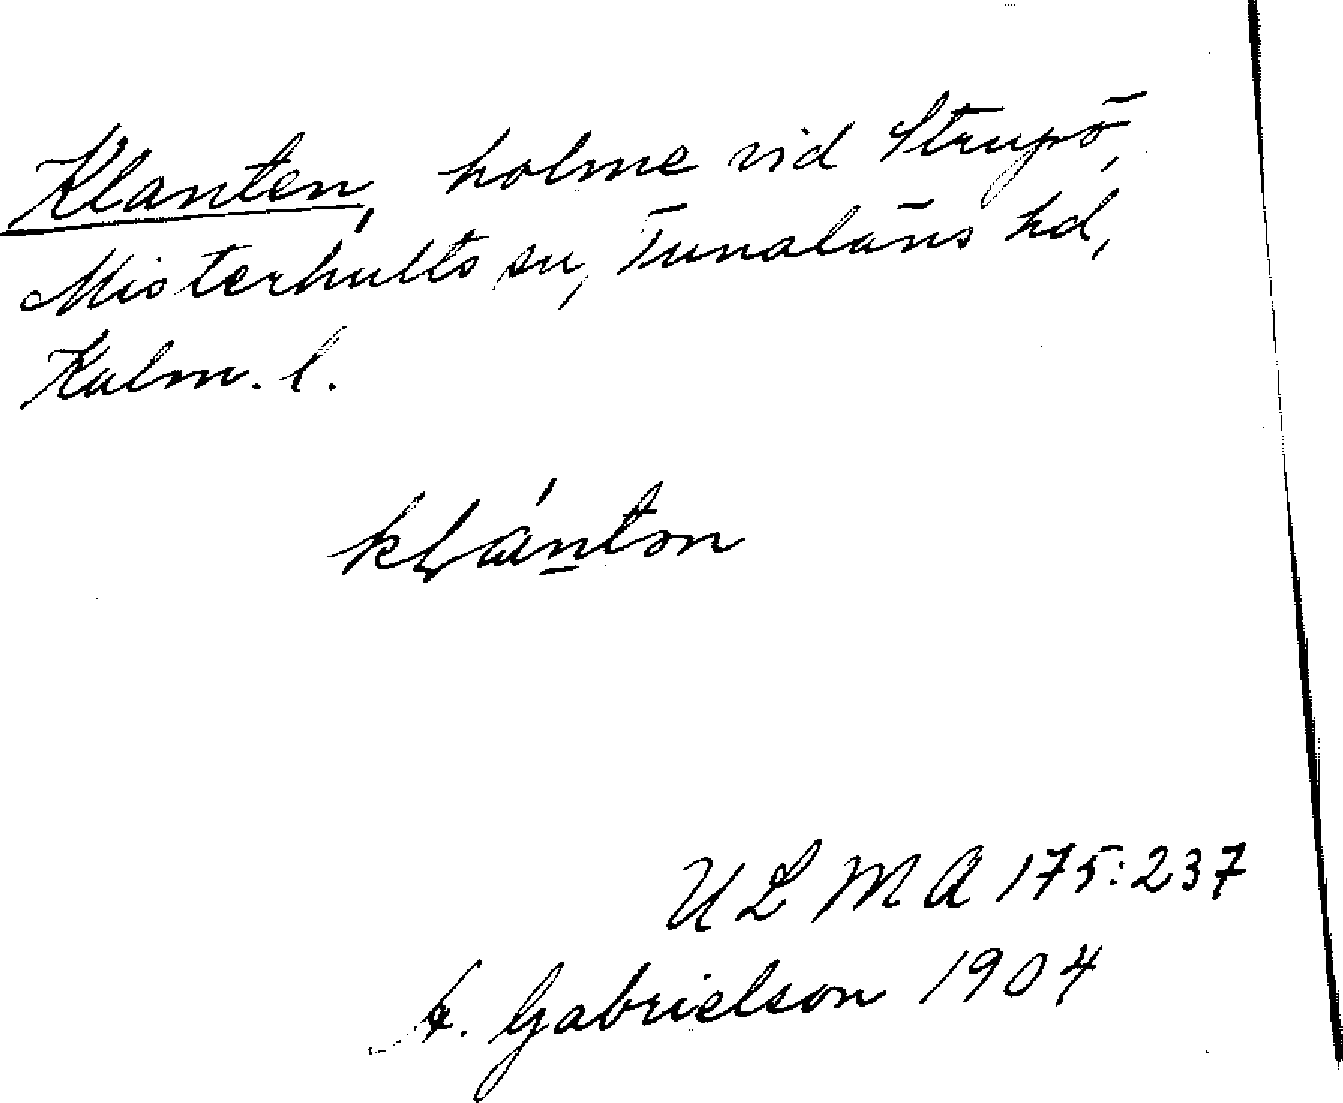 Klanten, holme vid Strupö,
Misterhults sn, Tunaläns hd,
Kalm. l.
kɫánton
ULMA 175:237
A. Gabrielson 1904